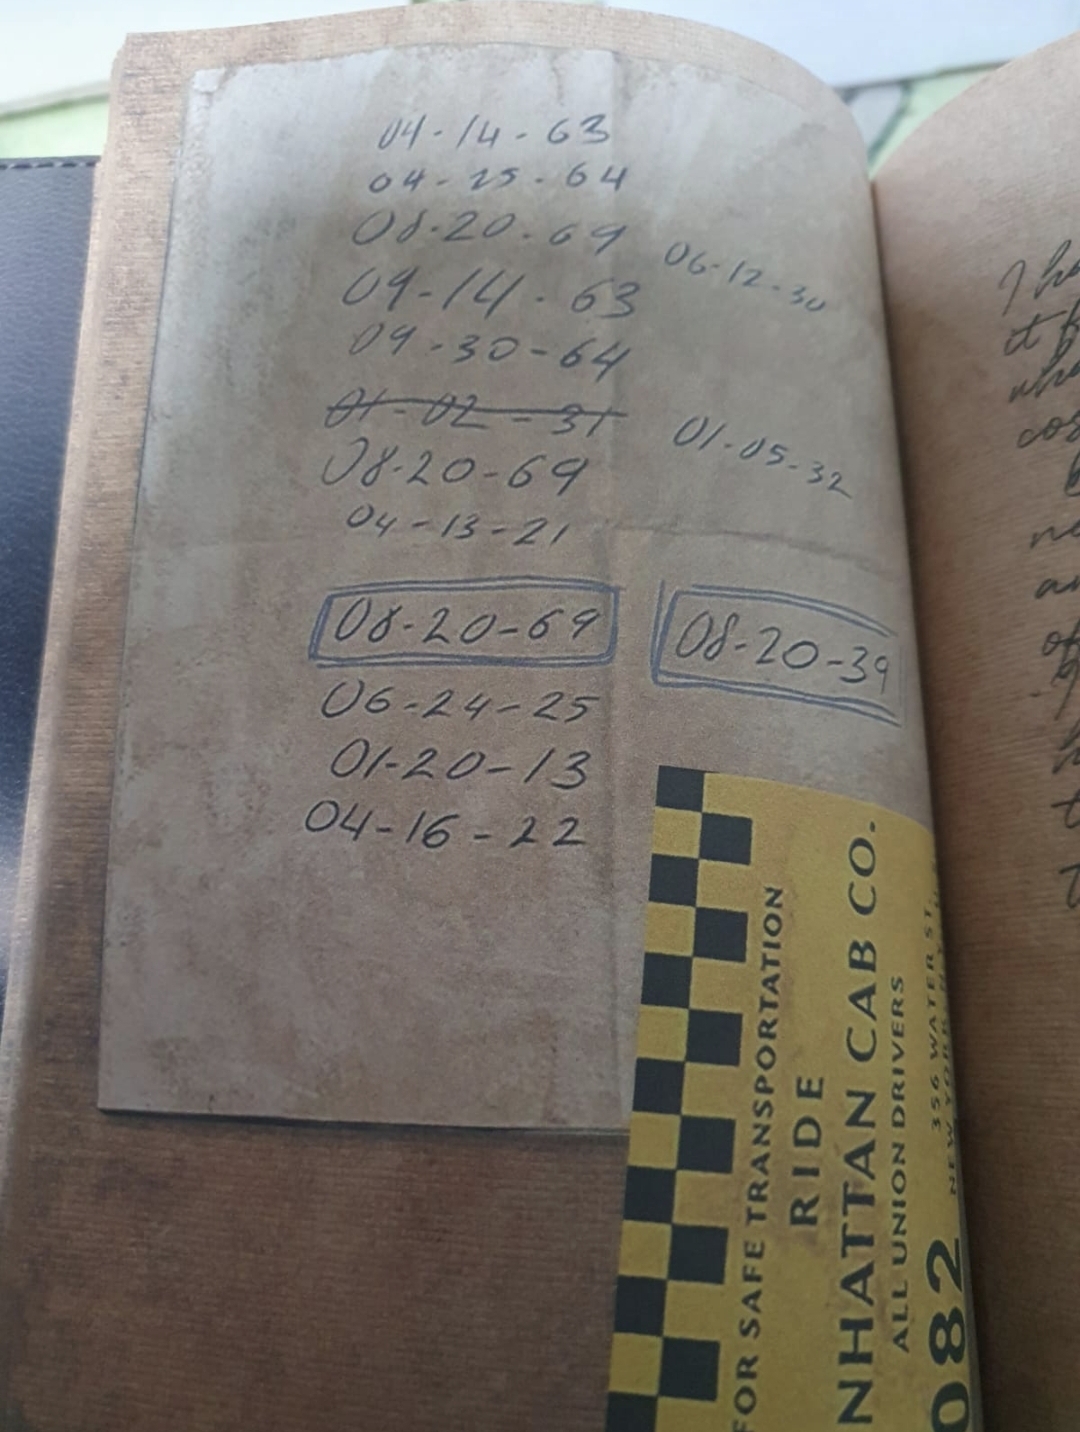 04-14-63
04-25-64
08-20-69
06-12-30
09-14-63
09-30-64
01-02-31
01-05-32
08-20-69
04-13-21
08-20-69
08-20-39
06-24-25
01-20-13
04-16-22
FOR SAFE TRANSPORTATION
RIDE
NHATTAN CAB CO.
ALL UNION DRIVERS
356 WATER ST.
NEW YORK
082
I ha
it